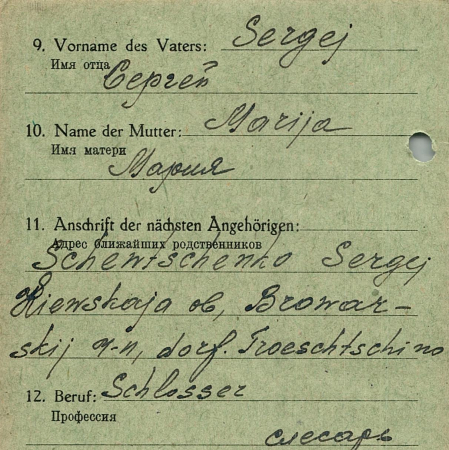 9. Vorname des Vaters: Sergej
Имя отца
Сергей
10. Name der Mutter: Marija
Имя матери
Мария
11. Anschrift der nächsten Angehörigen:
Адрес ближайших родственников
Schewtschenko Sergej
Kiewskaja ob, Browar-
skij r-n, dorf. Troeschtschino
12. Beruf: Schlosser
Профессия
слесарь